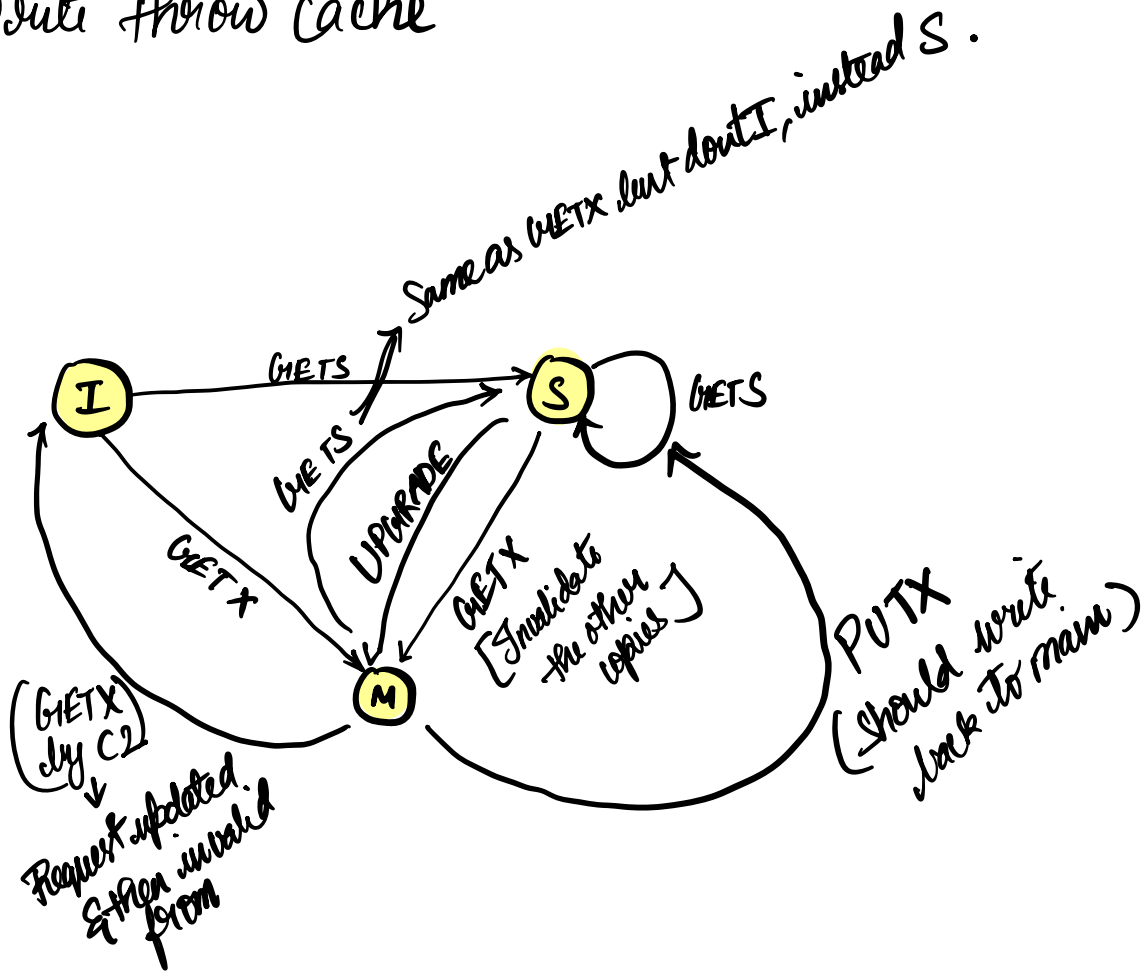 throw cache
Same as GETX but dont I, instead S.
I
GETS
S
GETS
GETS
UPGRADE
GETX
GETX
[Invalidate
the other
copies]
M
PUTX
(should write
back to main)
(GETX
by C2)
Request updated
& then invalid
from